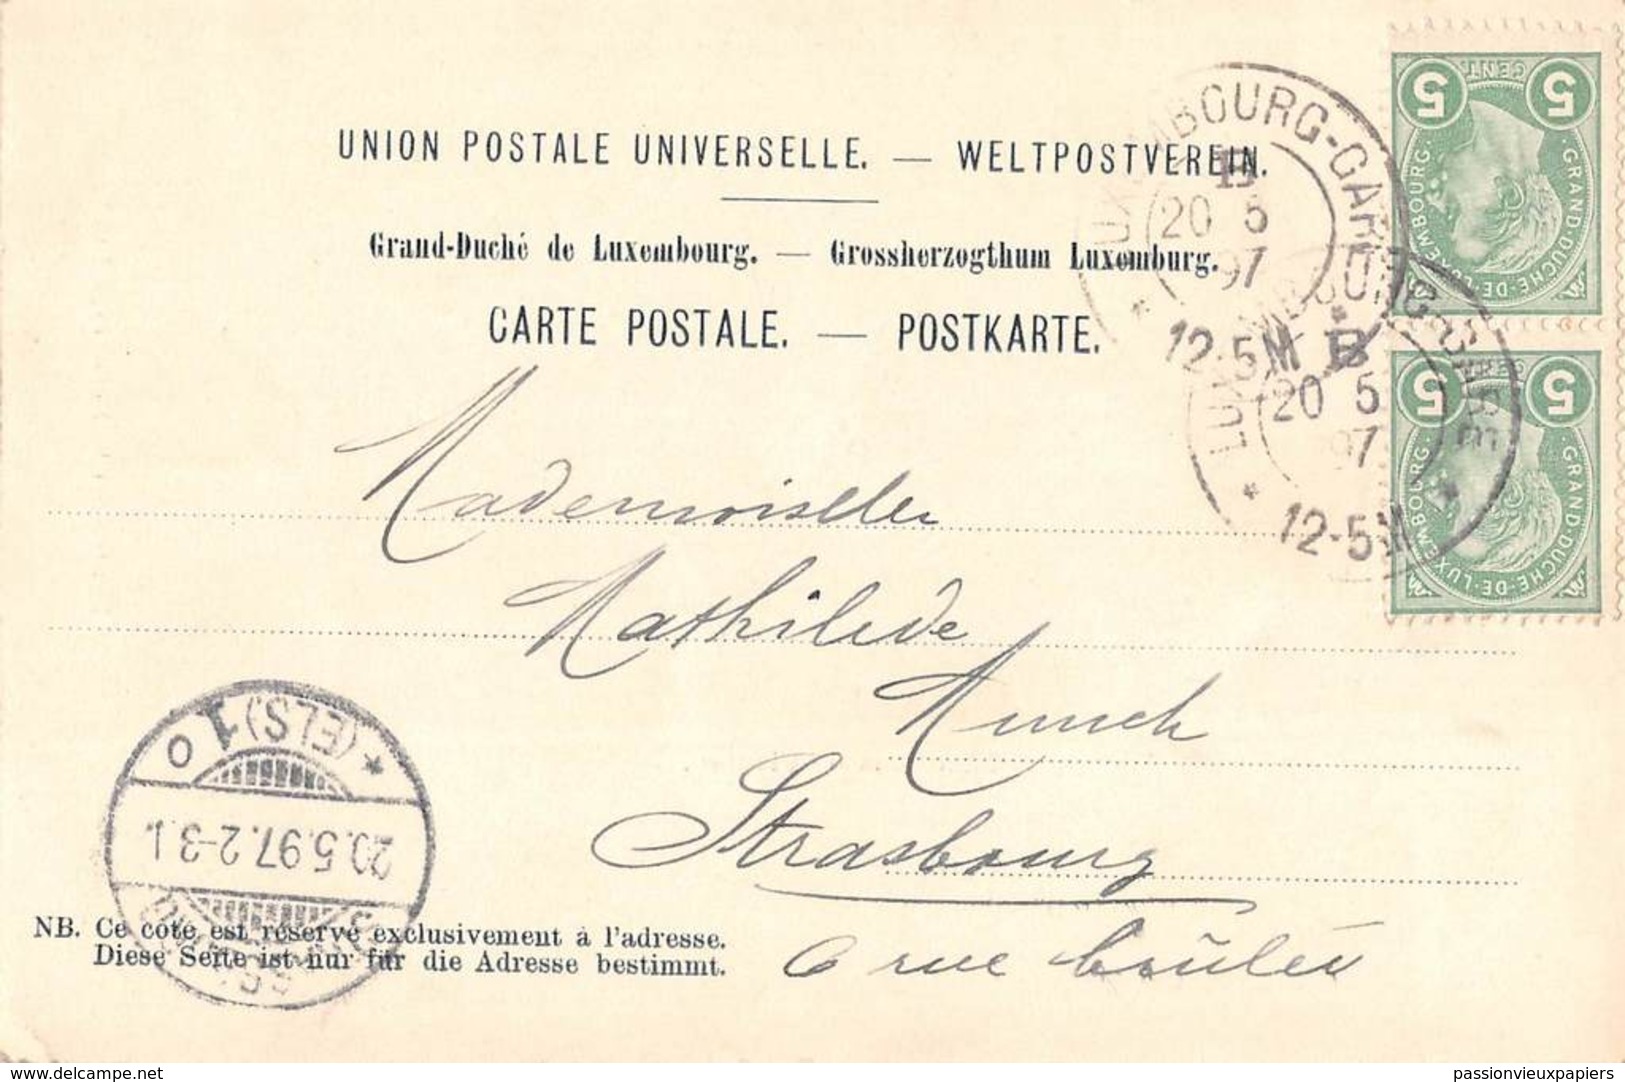 UNION POSTALE UNIVERSELLE. — WELTPOSTVEREIN.
Grand-Duché de Luxembourg. — Grossherzogthum Luxemburg.
CARTE POSTALE. — POSTKARTE.
5 CENT. 5
GRAND-DUCHÉ-DE-LUXEMBOURG.
5 CENT. 5
GRAND-DUCHÉ-DE-LUXEMBOURG.
LUXEMBOURG-GARE
B
20 5
97
12-5M
LUXEMBOURG-GARE
B
20 5
97
12-5M
Mademoiselle
Mathilde
Munch
Strasbourg
6 rue brûlée
* (ELS) 1 o
20.5.97.2-3.
NB. Ce côté est réservé exclusivement à l'adresse.
Diese Seite ist nur für die Adresse bestimmt.
delcampe.net
passionvieuxpapiers